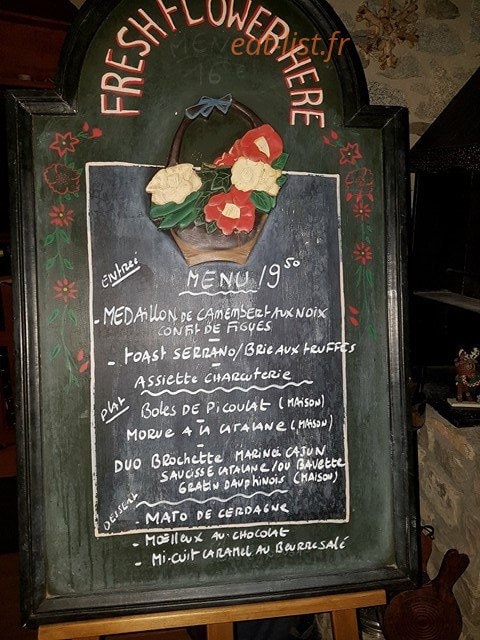 FRESH FLOWER HERE
MENU
16 €
edtlist.fr
ENTRÉE
MENU 19⁵⁰
- MEDAILLON DE CAMEMBERT AUX NOIX
CONFIT DE FIGUES
-
- TOAST SERRANO/BRIE AUX TRUFFES
-
ASSIETTE CHARCUTERIE
PLAT
BOLES DE PICOULAT (MAISON)
-
MORUE A LA CATALANE (MAISON)
-
DUO BROCHETTE MARINÉE CAJUN
SAUCISSE CATALANE/OU BAVETTE
GRATIN DAUPHINOIS (MAISON)
DESSERT
- MATO DE CERDAGNE
- MOËLLEUX AU CHOCOLAT
- MI-CUIT CARAMEL AU BEURRE SALÉ